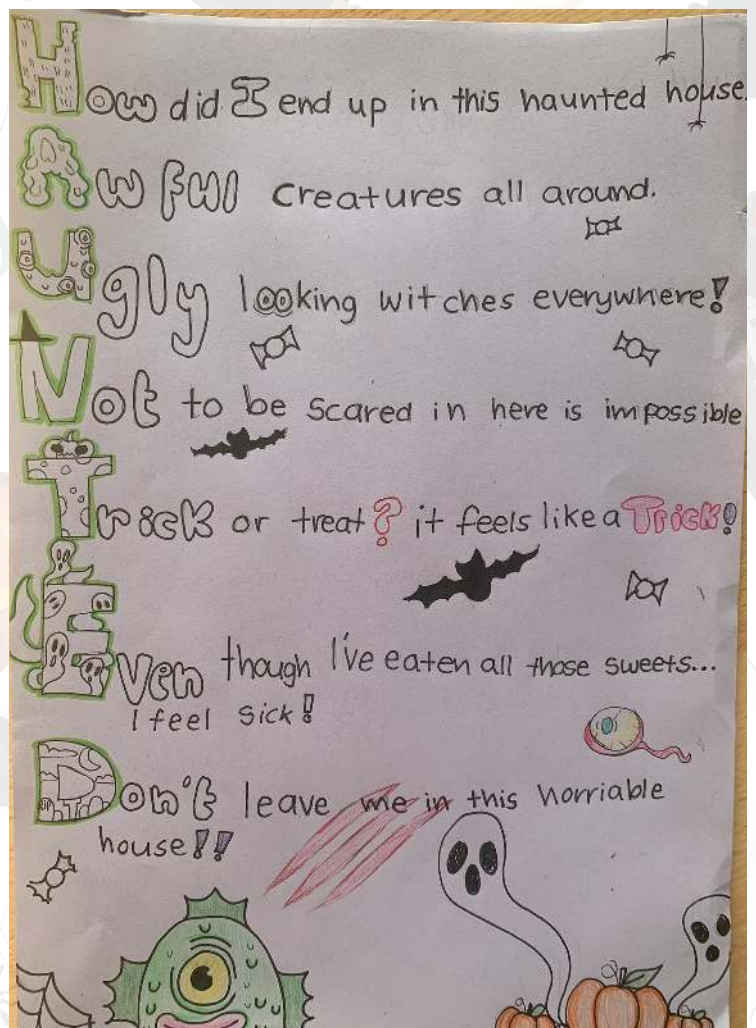 How did I end up in this haunted house.
Awful creatures all around.
Ugly looking witches everywhere!
Not to be scared in here is impossible
Trick or treat? it feels like a Trick!
Even though I've eaten all those sweets...
I feel sick!
Don't leave me in this horriable
house!!